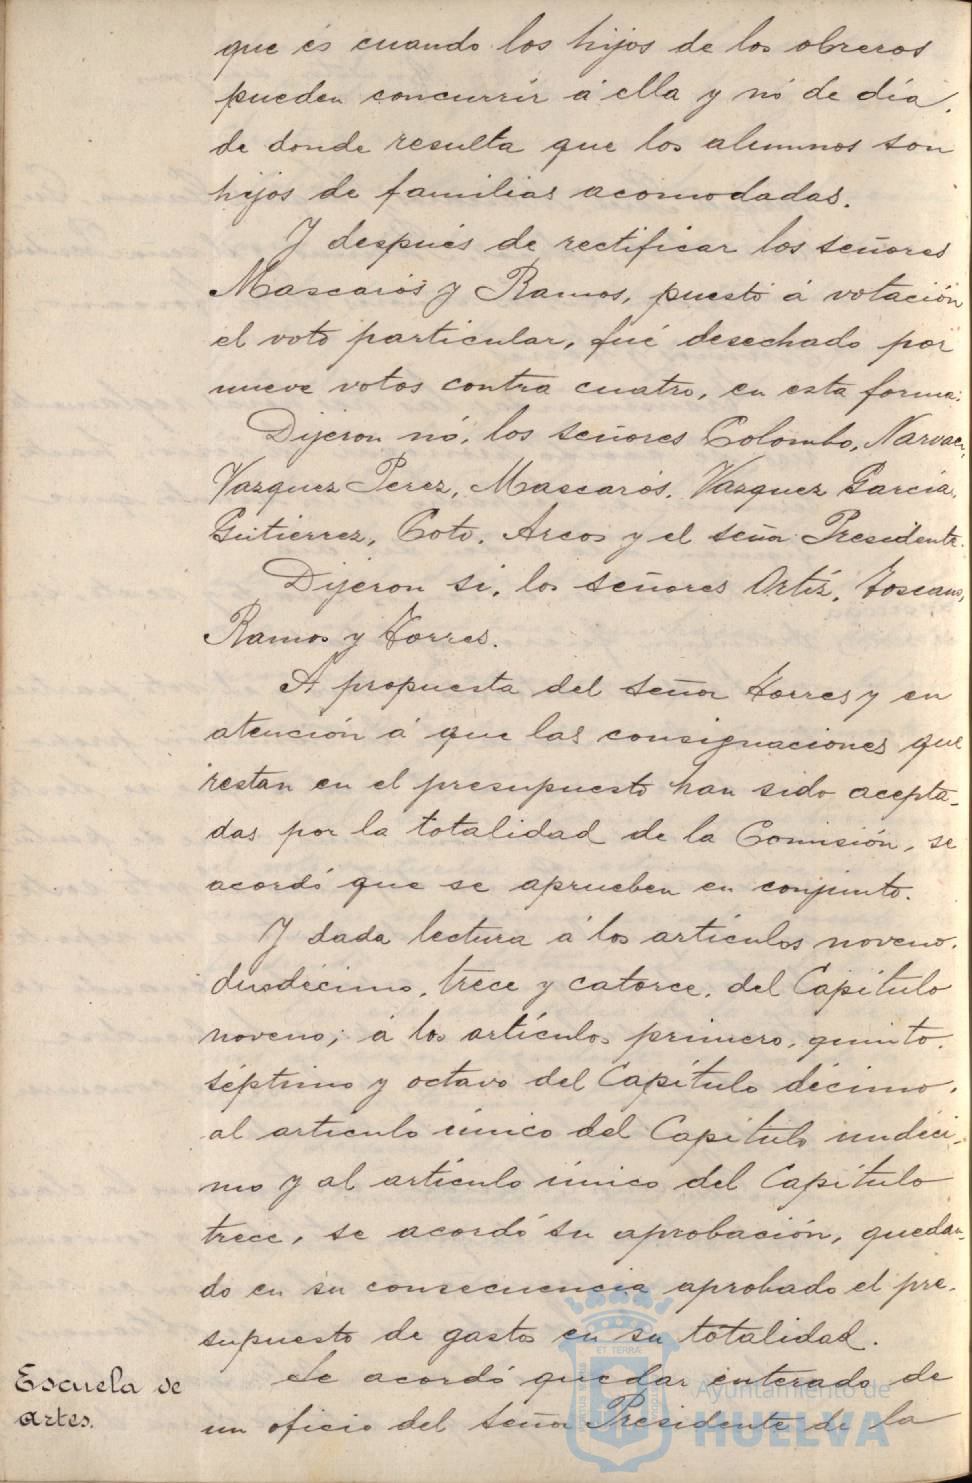 que és cuando los hijos de los obreros
pueden concurrir á ella y nó de día,
de donde resulta que los alumnos son
hijos de familias acomodadas.
Y después de rectificar los señores
Mascarós y Ramos, puesto á votación
el voto particular, fué desechado por
nueve votos contra cuatro, en esta forma:
Dijeron nó, los señores Colombo, Narvaez,
Vazquez Perez, Mascarós, Vazquez García,
Gutierrez, Coto, Arcos y el señor Presidente.
Dijeron si, los señores Ortíz, Toscano,
Ramos y Torres.
A propuesta del señor Torres y en
atención á que las consignaciones que
restan en el presupuesto han sido acepta-
das por la totalidad de la Comisión, se
acordó que se aprueben en conjunto.
Y dada lectura á los artículos noveno,
duodécimo, trece y catorce, del Capítulo
noveno; á los artículos primero, quinto,
séptimo y octavo del Capítulo décimo,
al artículo único del Capítulo undéci-
mo y al artículo único del Capítulo
trece, se acordó su aprobación, quedan-
do en su consecuencia aprobado el pre-
supuesto de gastos en su totalidad.
Escuela de
artes.
Se acordó quedar enterado de
un oficio del señor Presidente de la
ET TERRÆ
Ayuntamiento de
HUELVA